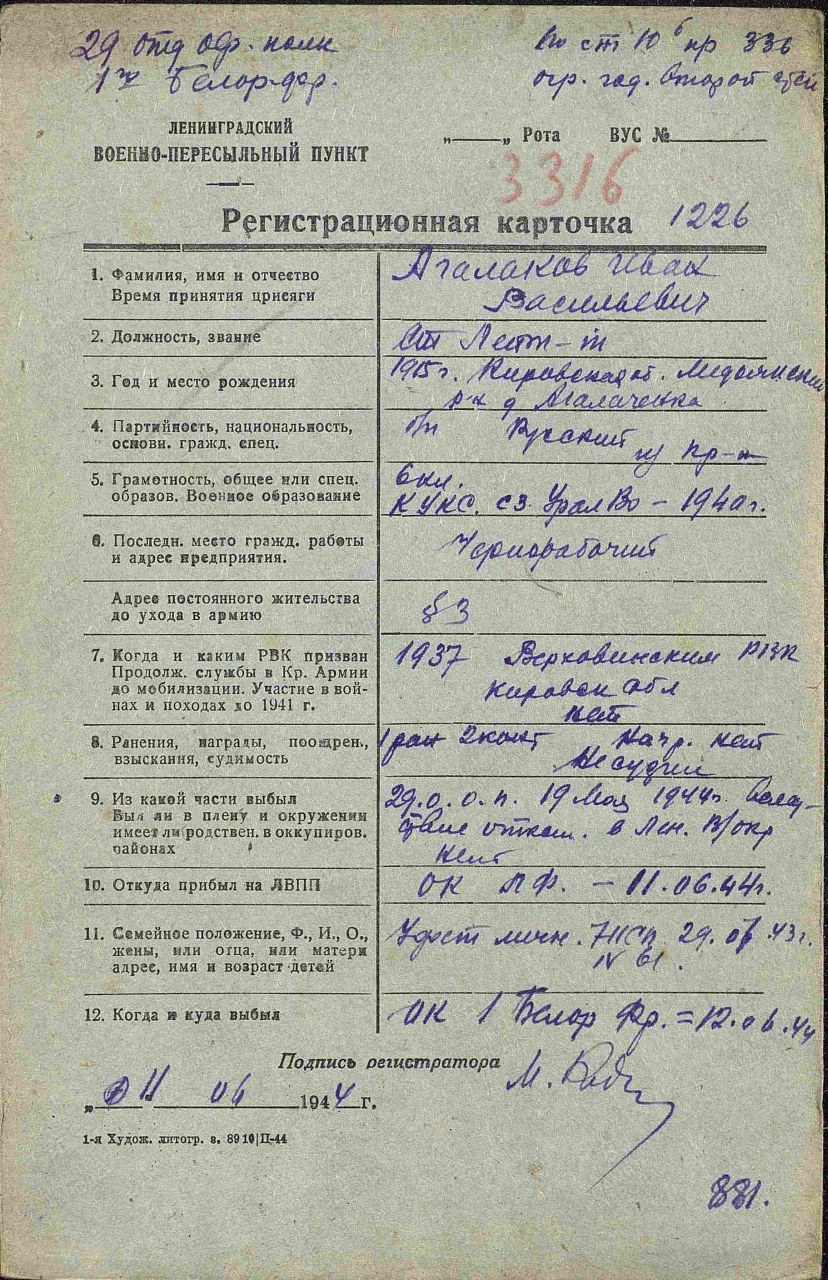 29 отд оф. полк
1го Белор. фр.
по ст 10б пр 336
огр. год. второй степ
ЛЕНИНГРАДСКИЙ
ВОЕННО-ПЕРЕСЫЛЬНЫЙ ПУНКТ
„——„ Рота ВУС №
3316
Регистрационная карточка 1226
1. Фамилия, имя и отчество
Время принятия присяги
Агалаков Иван
Васильевич
2. Должность, звание
Ст Лейт-т
3. Год и место рождения
1915г. Кировская об.
р-н д Агалаченка
4. Партийность, национальность,
основн. гражд. спец.
б/п Русский из кр-н
5. Грамотность, общее или спец.
образов. Военное образование
6 кл.
КУКС. сз. УралВо - 1940г.
6. Последн. место гражд. работы
и адрес предприятия.
Чернорабочий
Адрес постоянного жительства
до ухода в армию
§3
7. Когда и каким РВК призван
Продолж. службы в Кр. Армии
до мобилизации. Участие в вой-
нах и походах до 1941 г.
1937 Верховинским РВК
Кировск обл
нет
8. Ранения, награды, поощрен.,
взыскания, судимость
1 ран 2 конт Нагр. нет
Несудим
9. Из какой части выбыл
Был ли в плену и окружении
имеет ли родствен. в оккупиров.
районах
29.о.о.п. 19 Мая 1944г. вслед-
ствие отком. в Лен. В/окр
нет
10. Откуда прибыл на ЛВПП
ОК ЛФ. - 11.06.44г.
11. Семейное положение, Ф., И., О.,
жены, или отца, или матери
адрес, имя и возраст детей
Удост личн. 29. 43г.
12. Когда и куда выбыл
ОК 1 Белор Фр. = 12.06.44
Подпись регистратора
„ 11 “ 06 1944 г.
1-я Худож. литогр. з. 8910|П-44
881.